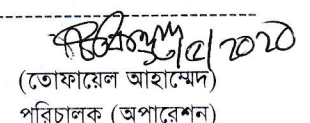 /৫/2020
(তোফায়েল আহাম্মেদ)
পরিচালক (অপারেশন)